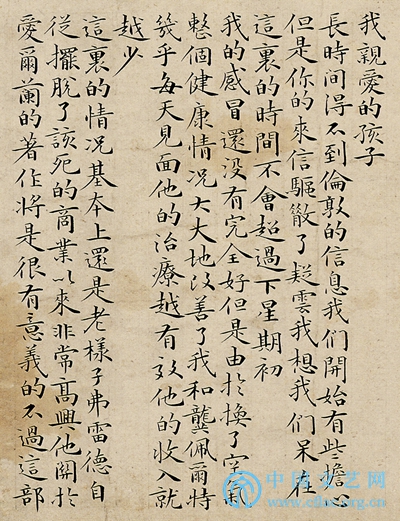 我親愛的孩子
長時間得不到倫敦的信息我們開始有些擔心
但是你的來信驅散了疑雲我想我們呆在
這裏的時間不會超過下星期初
我的感冒還没有完全好但是由於換了空氣
整個健康情况大大地改善了我和龔佩爾特
幾乎每天見面他的治療越有效他的收入就
越少
這裏的情况基本上還是老樣子弗雷德自
從擺脫了該死的商業以來非常高興他關於
愛爾蘭的著作將是很有意義的不過這部
中国文艺网
www.cflac.org.cn